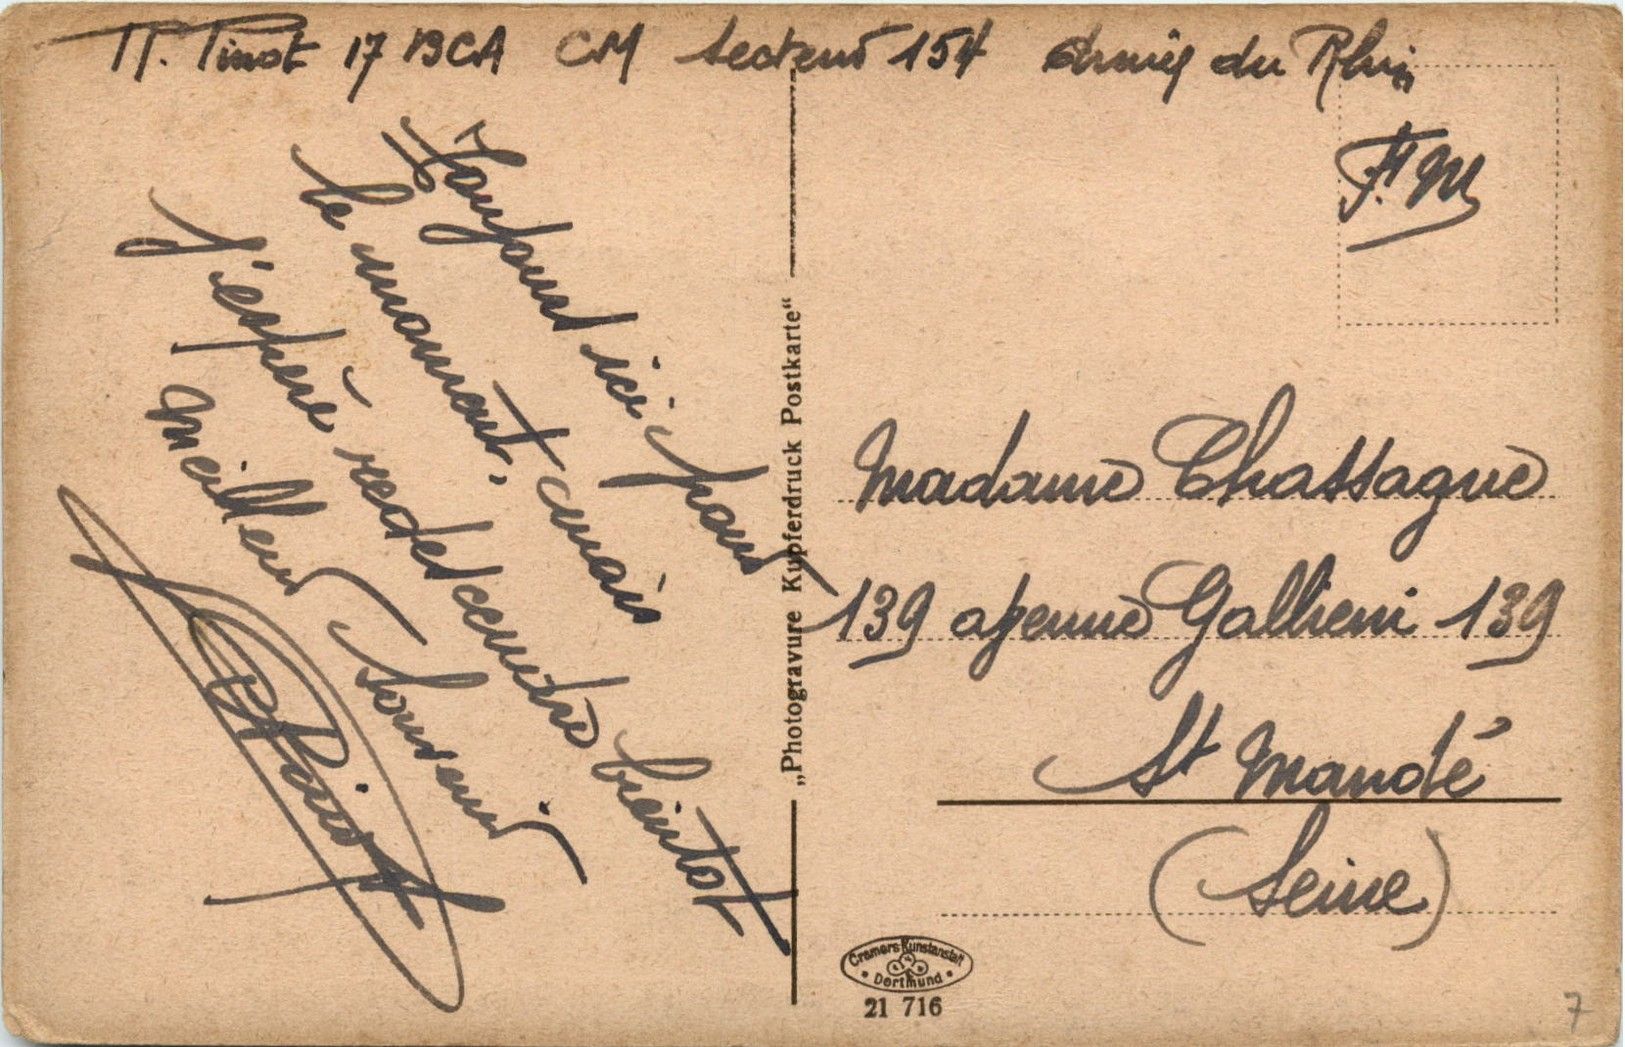 Pinot 17 BCA CM Secteur 154 Armée du Rhin
F.M
Toujours ici pour
le moment, mais
j'espère redescendre bientot
Meilleur Souvenir
Pinot
„Photogravure Kupferdruck Postkarte“
Madame Chassagne
139 avenue Gallieni 139
St Mandé
(Seine)
Cramers Kunstanstalt
Dortmund
21 716
7